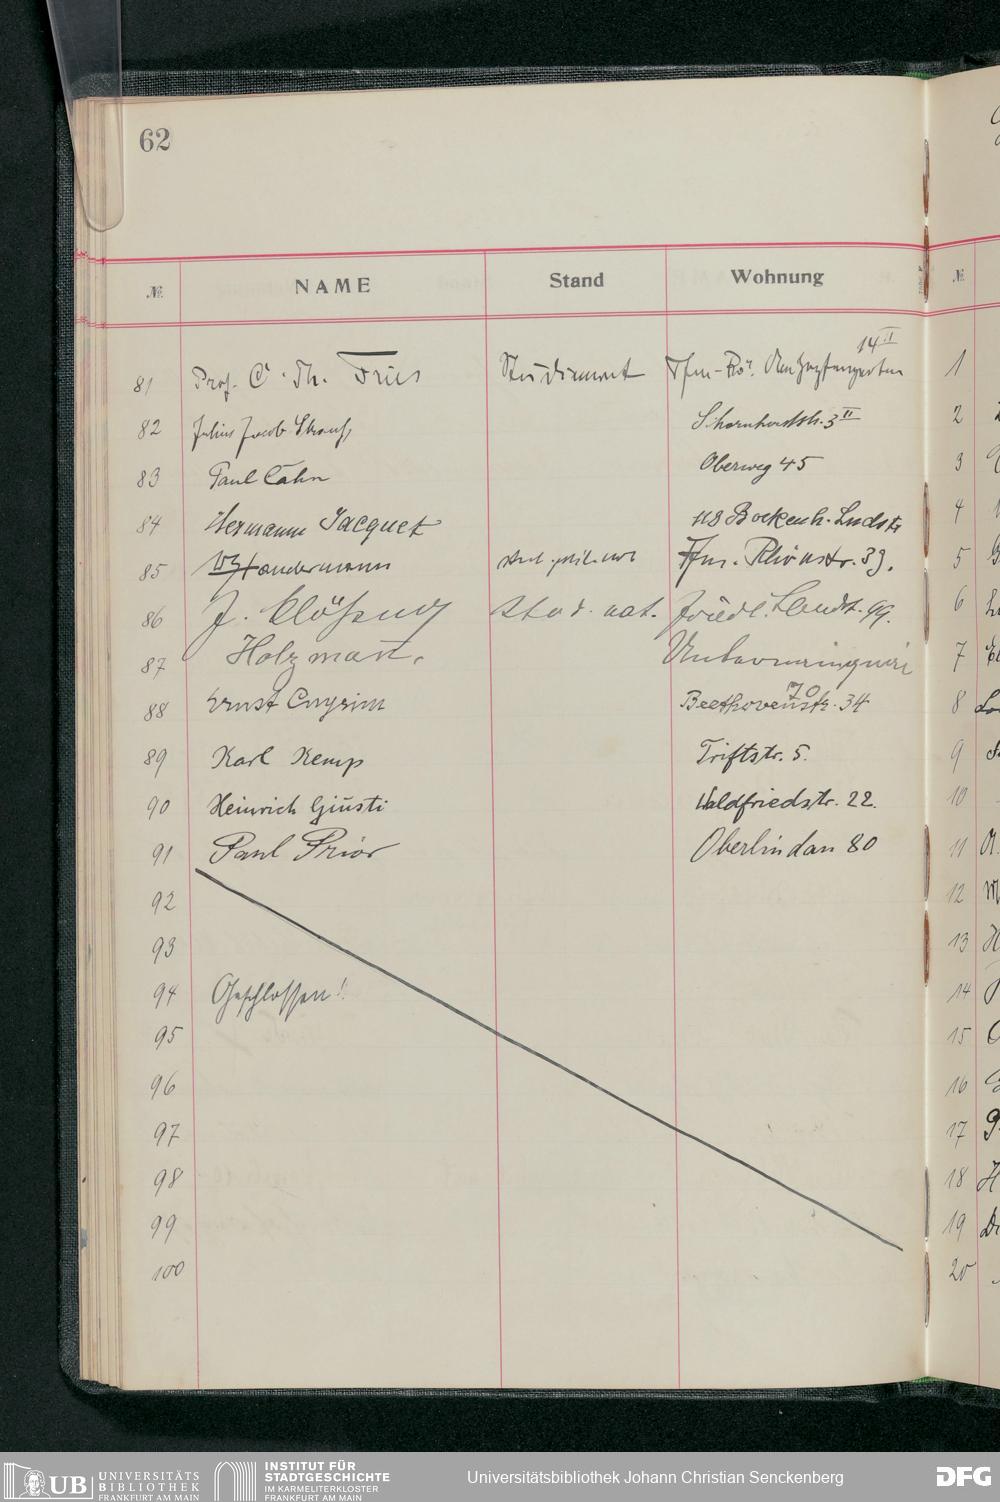 62
№ NAME Stand Wohnung №
14 II
81 Prof. C. Th. Fries 1
82 Julius Jacob Strauß Scharnhorststr. 3 II 2
83 Paul Cahn Oberweg 45 3
84 Hermann Jacquet 118 Bockenh. Ludstr 4
85 Ffm. Rhönstr. 39. 5
86 J. stud. nat. Friedb. Landst. 99. 6
87 Holzmann. 7
70
88 Ernst Cnyrim Beethovenstr. 34 8
89 Karl Kemp Triftstr. 5. 9
90 Heinrich Giusti Waldfriedstr. 22. 10
91 Paul Prior Oberlindau 80 11
92 12
93 13
94 Geschlossen! 14
95 15
96 16
97 17
98 18
99 19
100 20
UB UNIVERSITÄTS
BIBLIOTHEK
FRANKFURT AM MAIN
INSTITUT FÜR
STADTGESCHICHTE
IM KARMELITERKLOSTER
FRANKFURT AM MAIN
Universitätsbibliothek Johann Christian Senckenberg
DFG